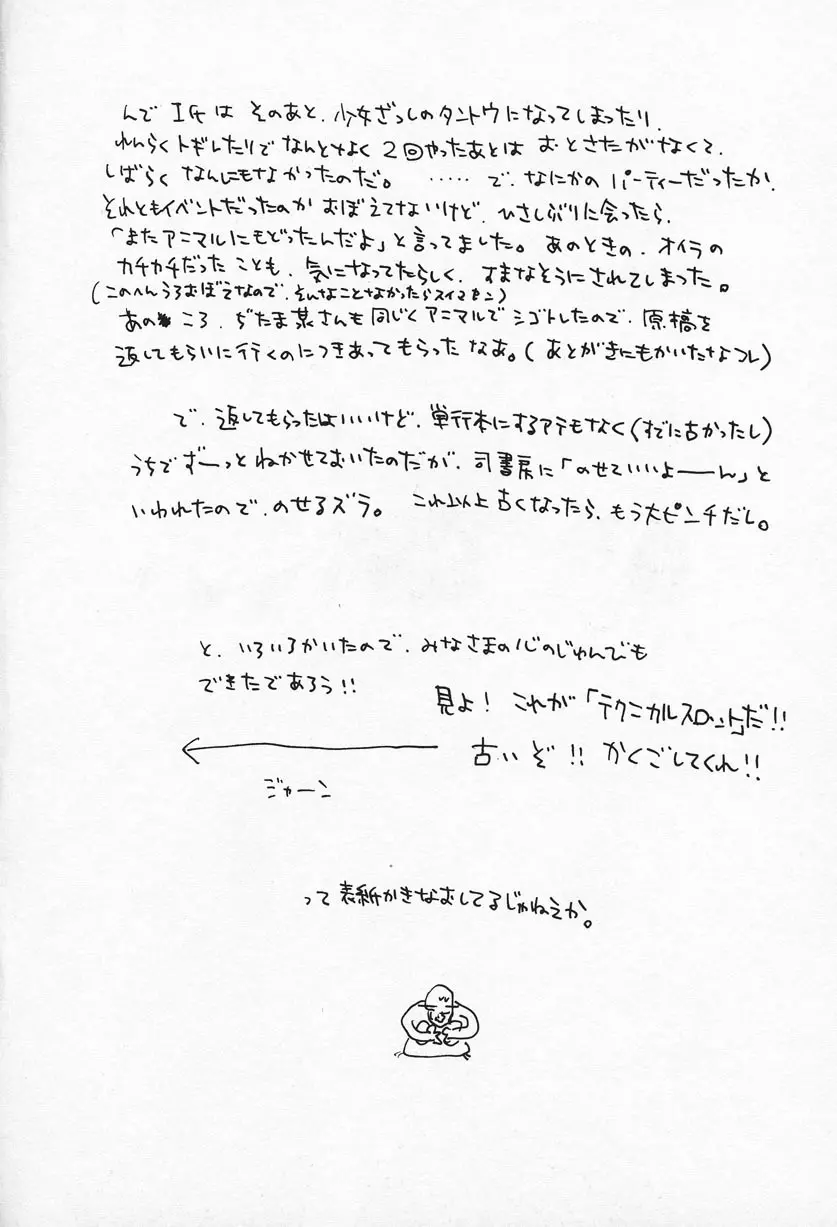 んで I氏は そのあと、少女ざっしのタントウになってしまったり、
れんらくトギレたりで なんとなく 2回やったあとは おとさたがなくて、
しばらく なんにもなかったのだ。 ・・・・・ で、なにかの パーティーだったか、
それともイベントだったのか おぼえてないけど、ひさしぶりに会ったら、
「またアニマルにもどったんだよ」と言ってました。 あのときの、オイラの
カチカチだった ことも、気になってたらしく、すまなそうにされてしまった。
(このへんうろおぼえなので、そんなことなかったらスイマセン)
あの ころ、ぢたま某さんも同じくアニマルでシゴトしたので、原稿を
返してもらいに行くのにつきあってもらった なあ。(あとがきにもかいたなコレ)
で、返してもらったはいいけど、単行本にするアテもなく(すでに古かったし)
うちでずーっと ねかせておいたのだが、司書房に「のせていいよーーん」と
いわれたので、のせるズラ。 これ以上古くなったら、もう大ピンチだし。
と、いろいろかいたので、みなさまの心のじゅんびも
できたであろう!!
見よ! これが「テクニカルスロット」だ!!
古いぞ!! かくごしてくれ!!
ジャーン
って 表紙かきなおしてるじゃねえか。